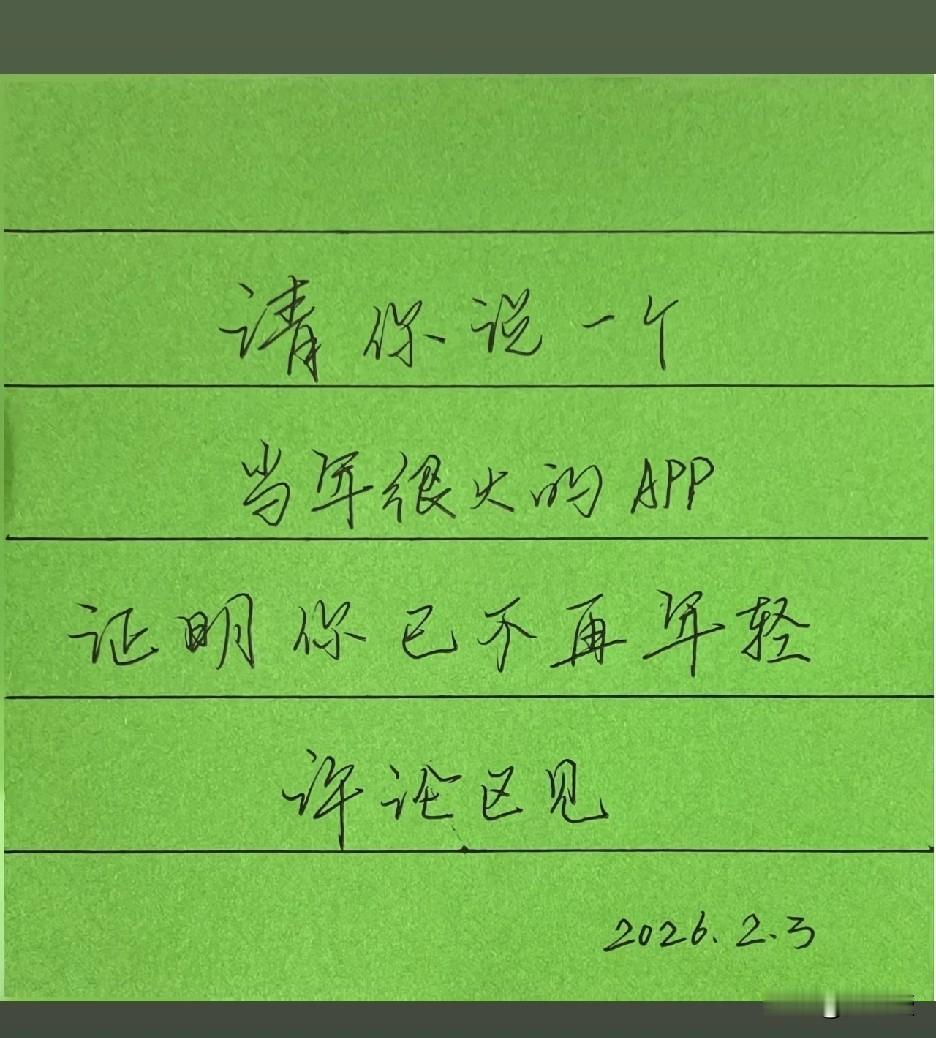 请你说一个
当年很火的APP
证明你已不再年轻
评论区见
2026.2.3